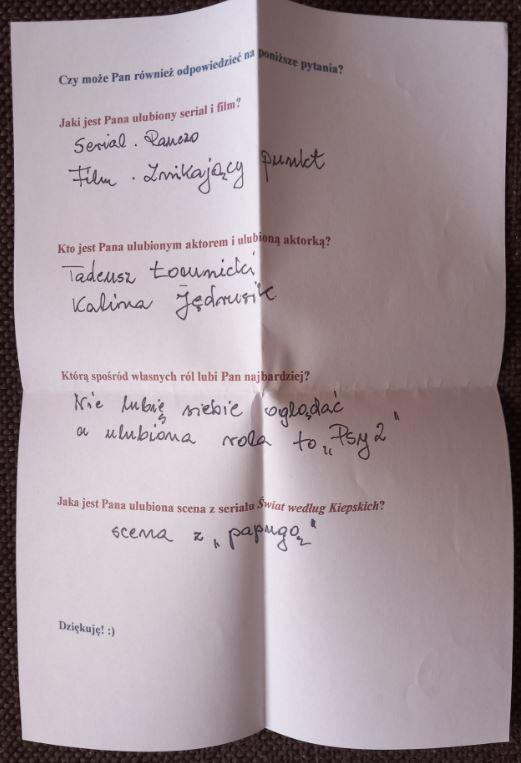 Czy może Pan również odpowiedzieć na poniższe pytania?
Jaki jest Pana ulubiony serial i film?
Serial . Ranczo
Film . Znikający punkt
Kto jest Pana ulubionym aktorem i ulubioną aktorką?
Tadeusz Łomnicki
Kalina Jędrusik
Którą spośród własnych ról lubi Pan najbardziej?
Nie lubię siebie oglądać
a ulubiona rola to „Psy 2"
Jaka jest Pana ulubiona scena z serialu Świat według Kiepskich?
scena z „papugą"
Dziękuję! :)